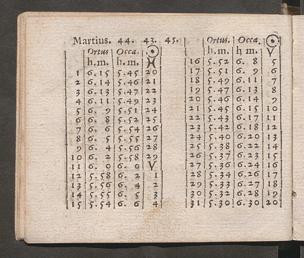 Martius. 44. 43. 45.
Ortus Occa. ☉
h. m. h. m. ♓
1 6.15 5.45 20
2 6.14 5.46 21
3 6.13 5.47 22
4 6.11 5.49 23
5 6. 9 5.51 24
6 6. 8 5.52 25
7 6. 6 5.54 26
8 6. 5 5.55 27
9 6. 4 5.56 28
10 6. 2 5.58 29
11 6. 0 6. 0 V
12 5.58 6. 2 1
13 5.56 6. 4 2
14 5.55 6. 5 3
15 5.54 6. 6 4
Ortus. Occa. ☉
h. m. h m. V
16 5.52 6. 8 5
17 5.51 6. 9 6
18 5.49 6.11 7
19 5.47 6.13 8
20 5.46 6.14 9
21 5.45 6.15 10
22 5.43 6.17 11
23 5.42 6.18 12
24 5.40 6.20 13
25 5.38 6.22 14
26 5.37 6.23 15
27 5.36 6.24 16
28 5.34 6.26 17
29 5.33 6.27 18
30 5.32 6.28 19
31 5.30 6.30 20